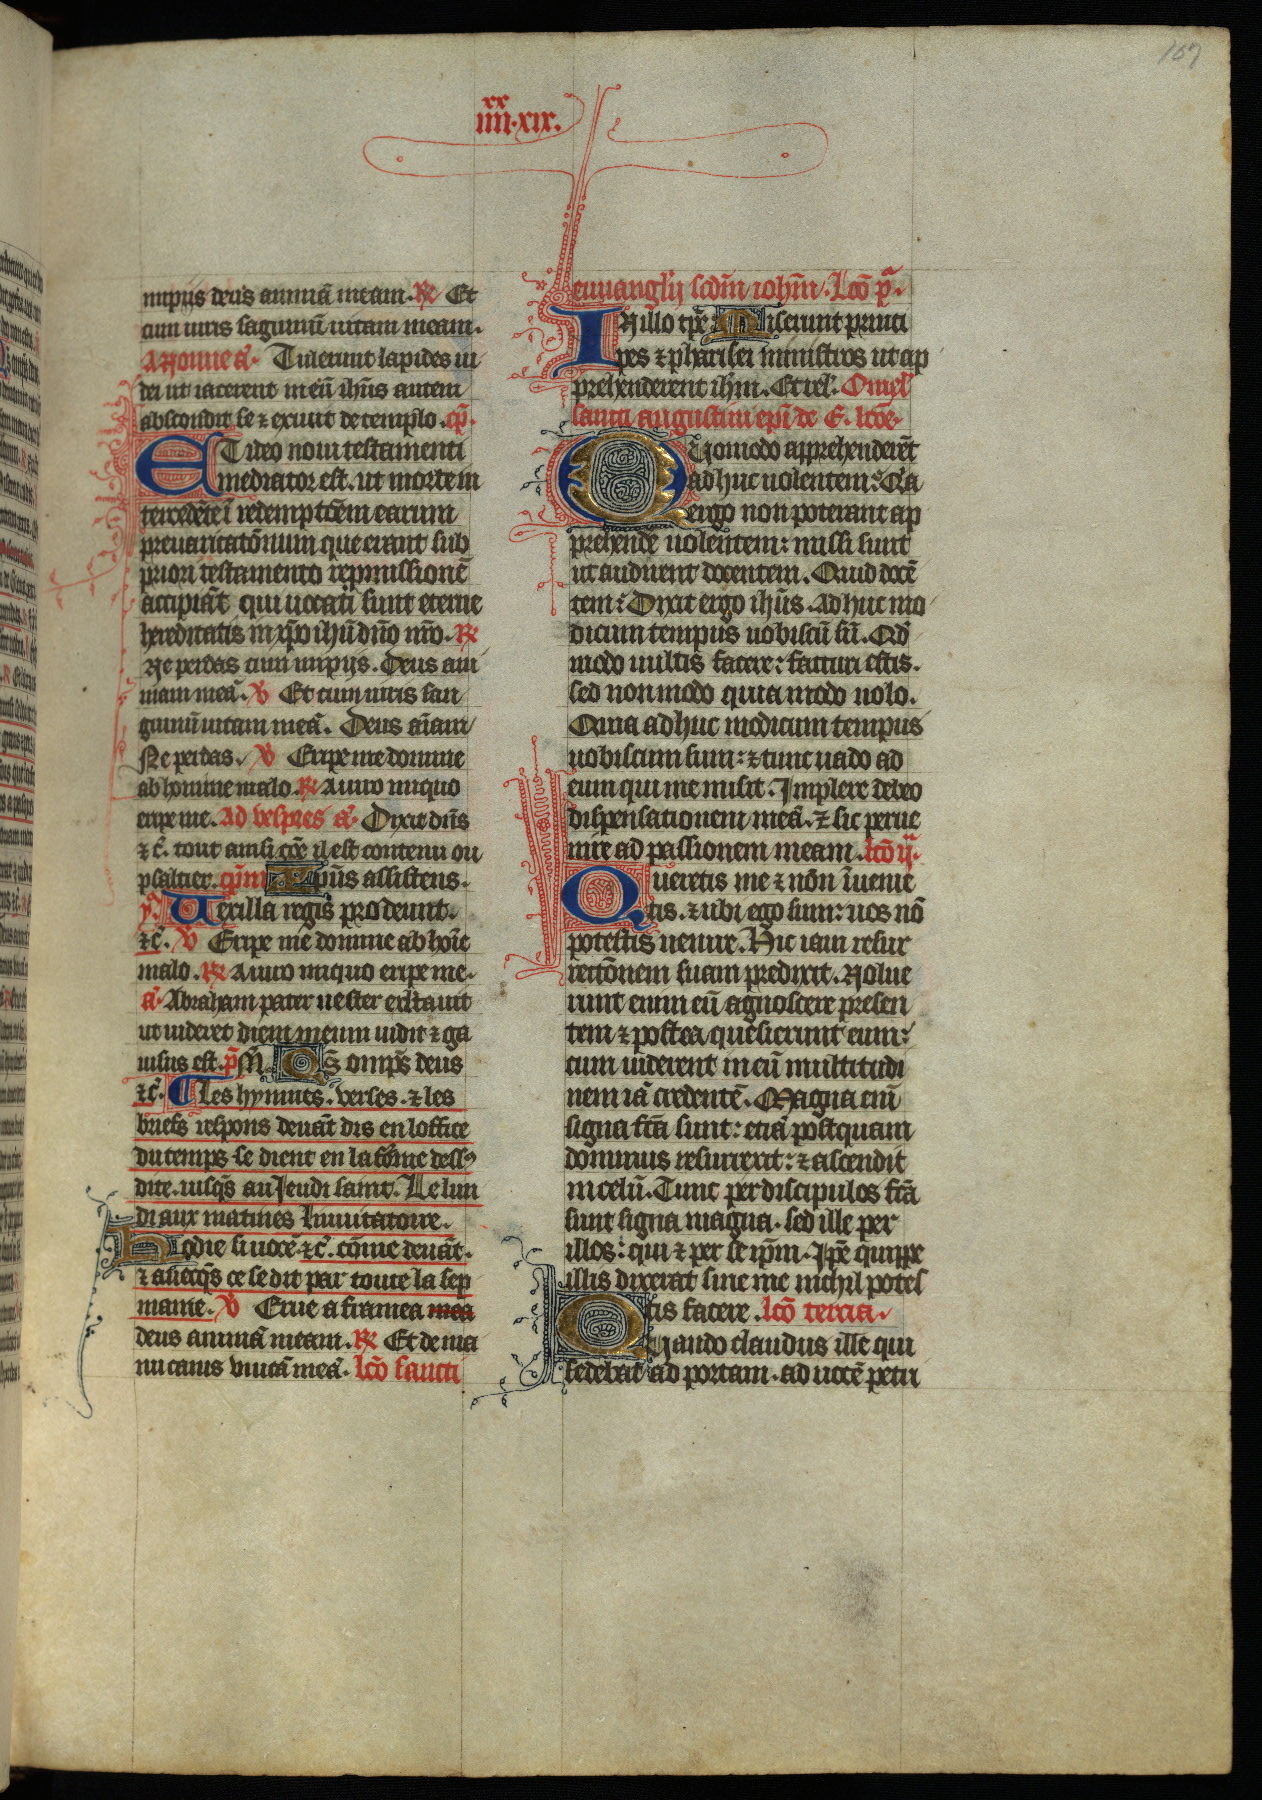 167
xx
iiii.xix.
impijs deus animā meam. R℟ Et
cum uiris saguinū uitam meam.
A nonne a᷑. Tulerunt lapides iu
dei ut iacerent in eū ihūs autem
abscondit se ⁊ exiuit de templo. cp̄.
ET ideo noui testamenti
mediator est. ut morte in
tercedēte ī redemptōem earum
preuaricatōnum que erant sub
priori testamento repmissionē
accipiāt qui uocati sunt eterne
hereditatis in xp̄o ihū dn̄o nr̄o. R℟
Ne perdas cum impijs. Deus ani
mam meā. ℣ Et cum uiris san
guinū uitam meā. Deus aīam
Ne perdas. ℣ Eripe me domine
ab homine malo. R℟ A uiro iniquo
eripe me. Ad vespres a᷑. Dixit dn̄s
⁊ c̄. tout ainsi cōe il est contenu ou
psaltier. cp̄m Xp̄us assistens.
yᵃ Uexilla regis prodeunt.
⁊c̄. ℣ Eripe me domine ab hoīe
malo. R℟ A uiro iniquo eripe me.
a᷑. Abraham pater uester exltauit
ut uideret diem meum uidit ⁊ ga
uisus est. p̄ M̄. Qs̄ omp̄s deus
⁊c̄. Les hymnes. verses. ⁊ les
briefs respons deuāt dis en loffice
du temps se dient en la fōme dess9
dite. iusqs au Jeudi saint. Le lun
di aux matines Inuitatoire.
Hodie si uocē. ⁊c̄. cōme deuāt.
⁊ auecqs ce se dit par toute la sep
maine. ℣ Erue a framea mea
deus animā meam. R℟ Et de ma
nu canis vnicā meā. lcō sancti
euuanglij scdm̄ iohm̄. Lcō pᵃ.
IN illo tpr̄e Miserunt princi
pes ⁊ pharisei ministros ut ap
prehenderent ihm̄. Et rel. Omel
sancti augustini epī de E. lcōe.
Quomodo apprehenderēt
adhuc nolentem: Qa
ergo non poterant ap
prehende nolentem: missi sunt
ut audirent docentem. Quid docē
tem: Dixit ergo ihūs. Adhuc mo
dicum tempus uobiscū sū. Qd
modo uultis facere: facturi estis.
sed non modo quia modo nolo.
Quia adhuc modicum tempus
uobiscum sum: ⁊ tunc uado ad
eum qui me misit. Implere debeo
dispensationem meā. ⁊ sic perue
nire ad passionem meam. lcō ijᵃ.
Queretis me ⁊ nōn īuenie
tis. ⁊ ubi ego sum: uos nō
potestis uenire. Hic iam resur
rectōnem suam predixit. Nolue
runt eum eū agnoscere presen
tem ⁊ postea quesierunt eum:
cum uiderent in eū multitudi
nem iā credentē. Magna enī
signa fcā sunt: etiā postquam
dominus resurrexit: ⁊ ascendit
in celū. Tunc per discipulos fcā
sunt signa magna. sed ille per
illos: qui ⁊ per se ip̄m. Ip̄e quippe
illis dixerat sine me nichil potes
tis facere. lcō tercia.
Quando claudus ille qui
sedebat ad portam. ad uocē petri